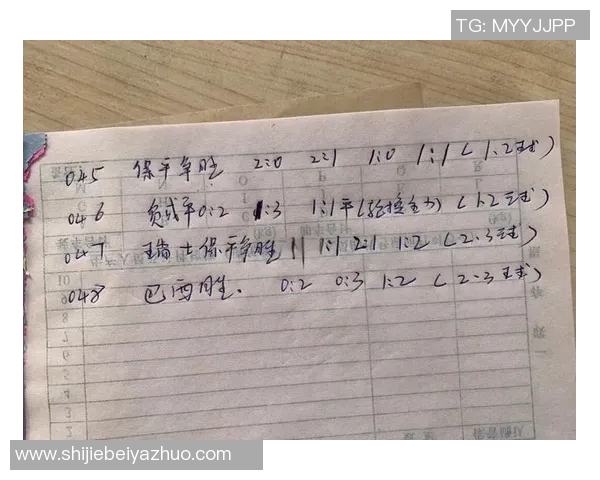 TG: MYYJJPP
045 保平争胜 2:0 2:1 1:0 1:1 (1.2球)
046 负或平 0:2 1:3 1:1平 ( (1.2球)
047 瑞士保平争胜 || 1:1 2:1 1:2 (2.3球)
048 巴西胜. 0:2 0:3 1:2 (2-3球)
www.shijiebeiyazhuo.com